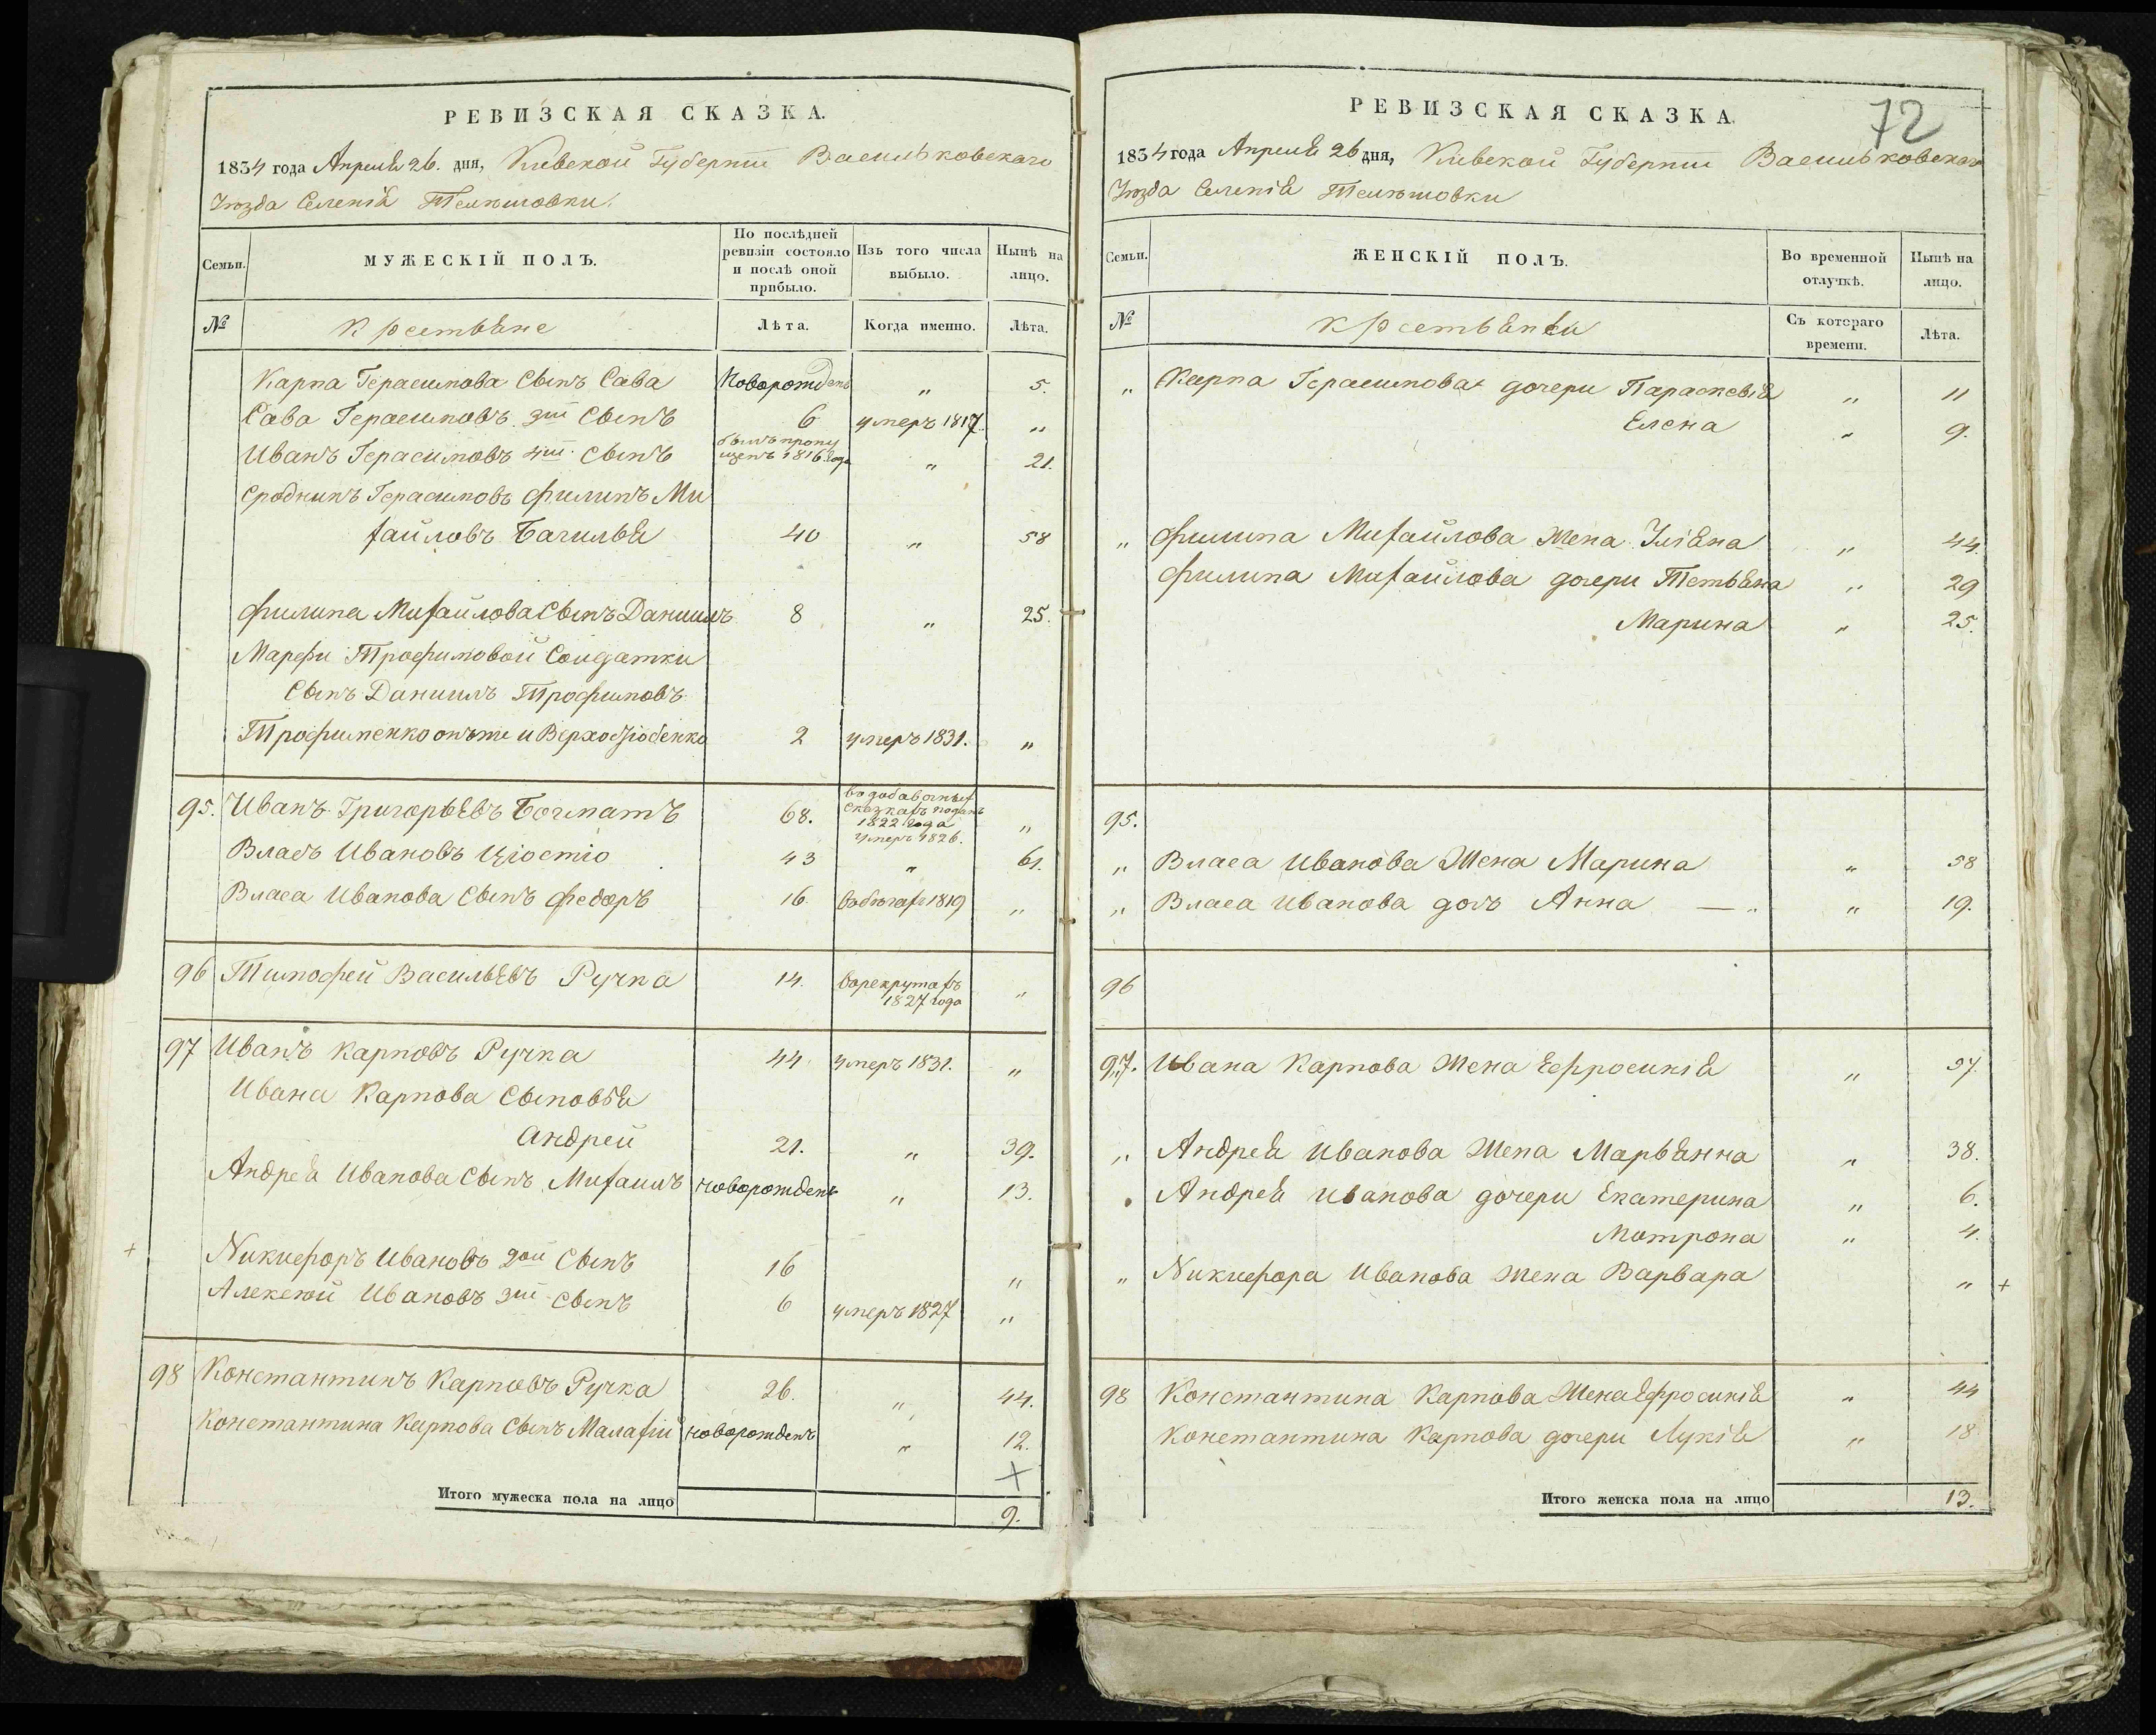 РЕВИЗСКАЯ СКАЗКА.
1834 года Апреля 26. дня, Киевской Губернии Васильковскаго
Уезда Селенія Телешовки.
Семьи. МУЖЕСКІЙ ПОЛЪ. По послѣдней ревизіи состояло и послѣ оной прибыло. Изъ того числа выбыло. Нынѣ на лицо.
№ Крестьяне Лѣта. Когда именно. Лѣта.
Карпа Герасимова Сынъ Сава Новорожденъ „ 5.
Сава Герасимовъ 3й Сынъ 6 умеръ 1817. „
Иванъ Герасимовъ 4й Сынъ былъ пропущенъ 1816 года „ 21.
Сродникъ Герасимовъ Филипъ Ми
хайловъ 40 „ 58
Филипа Михайлова Сынъ Даниилъ 8 „ 25.
Марфи Трофимовой Солдатки
Сынъ Даниилъ Трофимовъ
Трофименко онъже и 2 умеръ 1831. „
95. Иванъ Григорьевъ 68. въ добавочныхъ сказкахъ поданъ 1822 года умеръ 1826. „
Власъ Ивановъ 43 „ 61.
Власа Иванова Сынъ Федоръ 16 въ бегахъ 1819 „
96 Тимофей Васильевъ Ручка 14. в рекрутахъ 1827 года „
97 Иванъ Карповъ Ручка 44 умеръ 1831. „
Ивана Карпова Сыновья
Андрей 21. „ 39.
Андрея Иванова Сынъ Михаилъ новорожденъ „ 13.
+ Никифоръ Ивановъ 2ой Сынъ 16 „
Алексей Ивановъ 3й Сынъ 6 умеръ 1827 „
98 Константинъ Карповъ Ручка 26. „ 44.
Константина Карпова Сынъ Малахій новорожденъ „ 12.
+
Итого мужеска пола на лицо 9.
72
РЕВИЗСКАЯ СКАЗКА.
1834 года Апреля 26 дня, Киевской Губернии Васильковскаго
Уезда Селенія Телешовки
Семьи. ЖЕНСКІЙ ПОЛЪ. Во временной отлучкѣ. Нынѣ на лицо.
№ Крестьянки Съ котораго времени. Лѣта.
„ Карпа Герасимова дочери Параскевія „ 11
Елена „ 9.
„ Филипа Михайлова Жена Уліяна „ 44.
Филипа Михайлова дочери Тетьяна „ 29
Марина „ 25.
95.
„ Власа Иванова Жена Марина „ 58
„ Власа Иванова дочь Анна „ 19.
96
97. Ивана Карпова Жена Ефросинія „ 57.
„ Андрея Иванова Жена Марьянна „ 38.
Андрея Иванова дочери Екатерина „ 6.
Мотрона „ 4.
„ Никифора Иванова жена Варвара „ +
98 Константина Карпова Жена Ефросинія „ 44
Константина Карпова дочери Лукія „ 18
Итого женска пола на лицо 13.